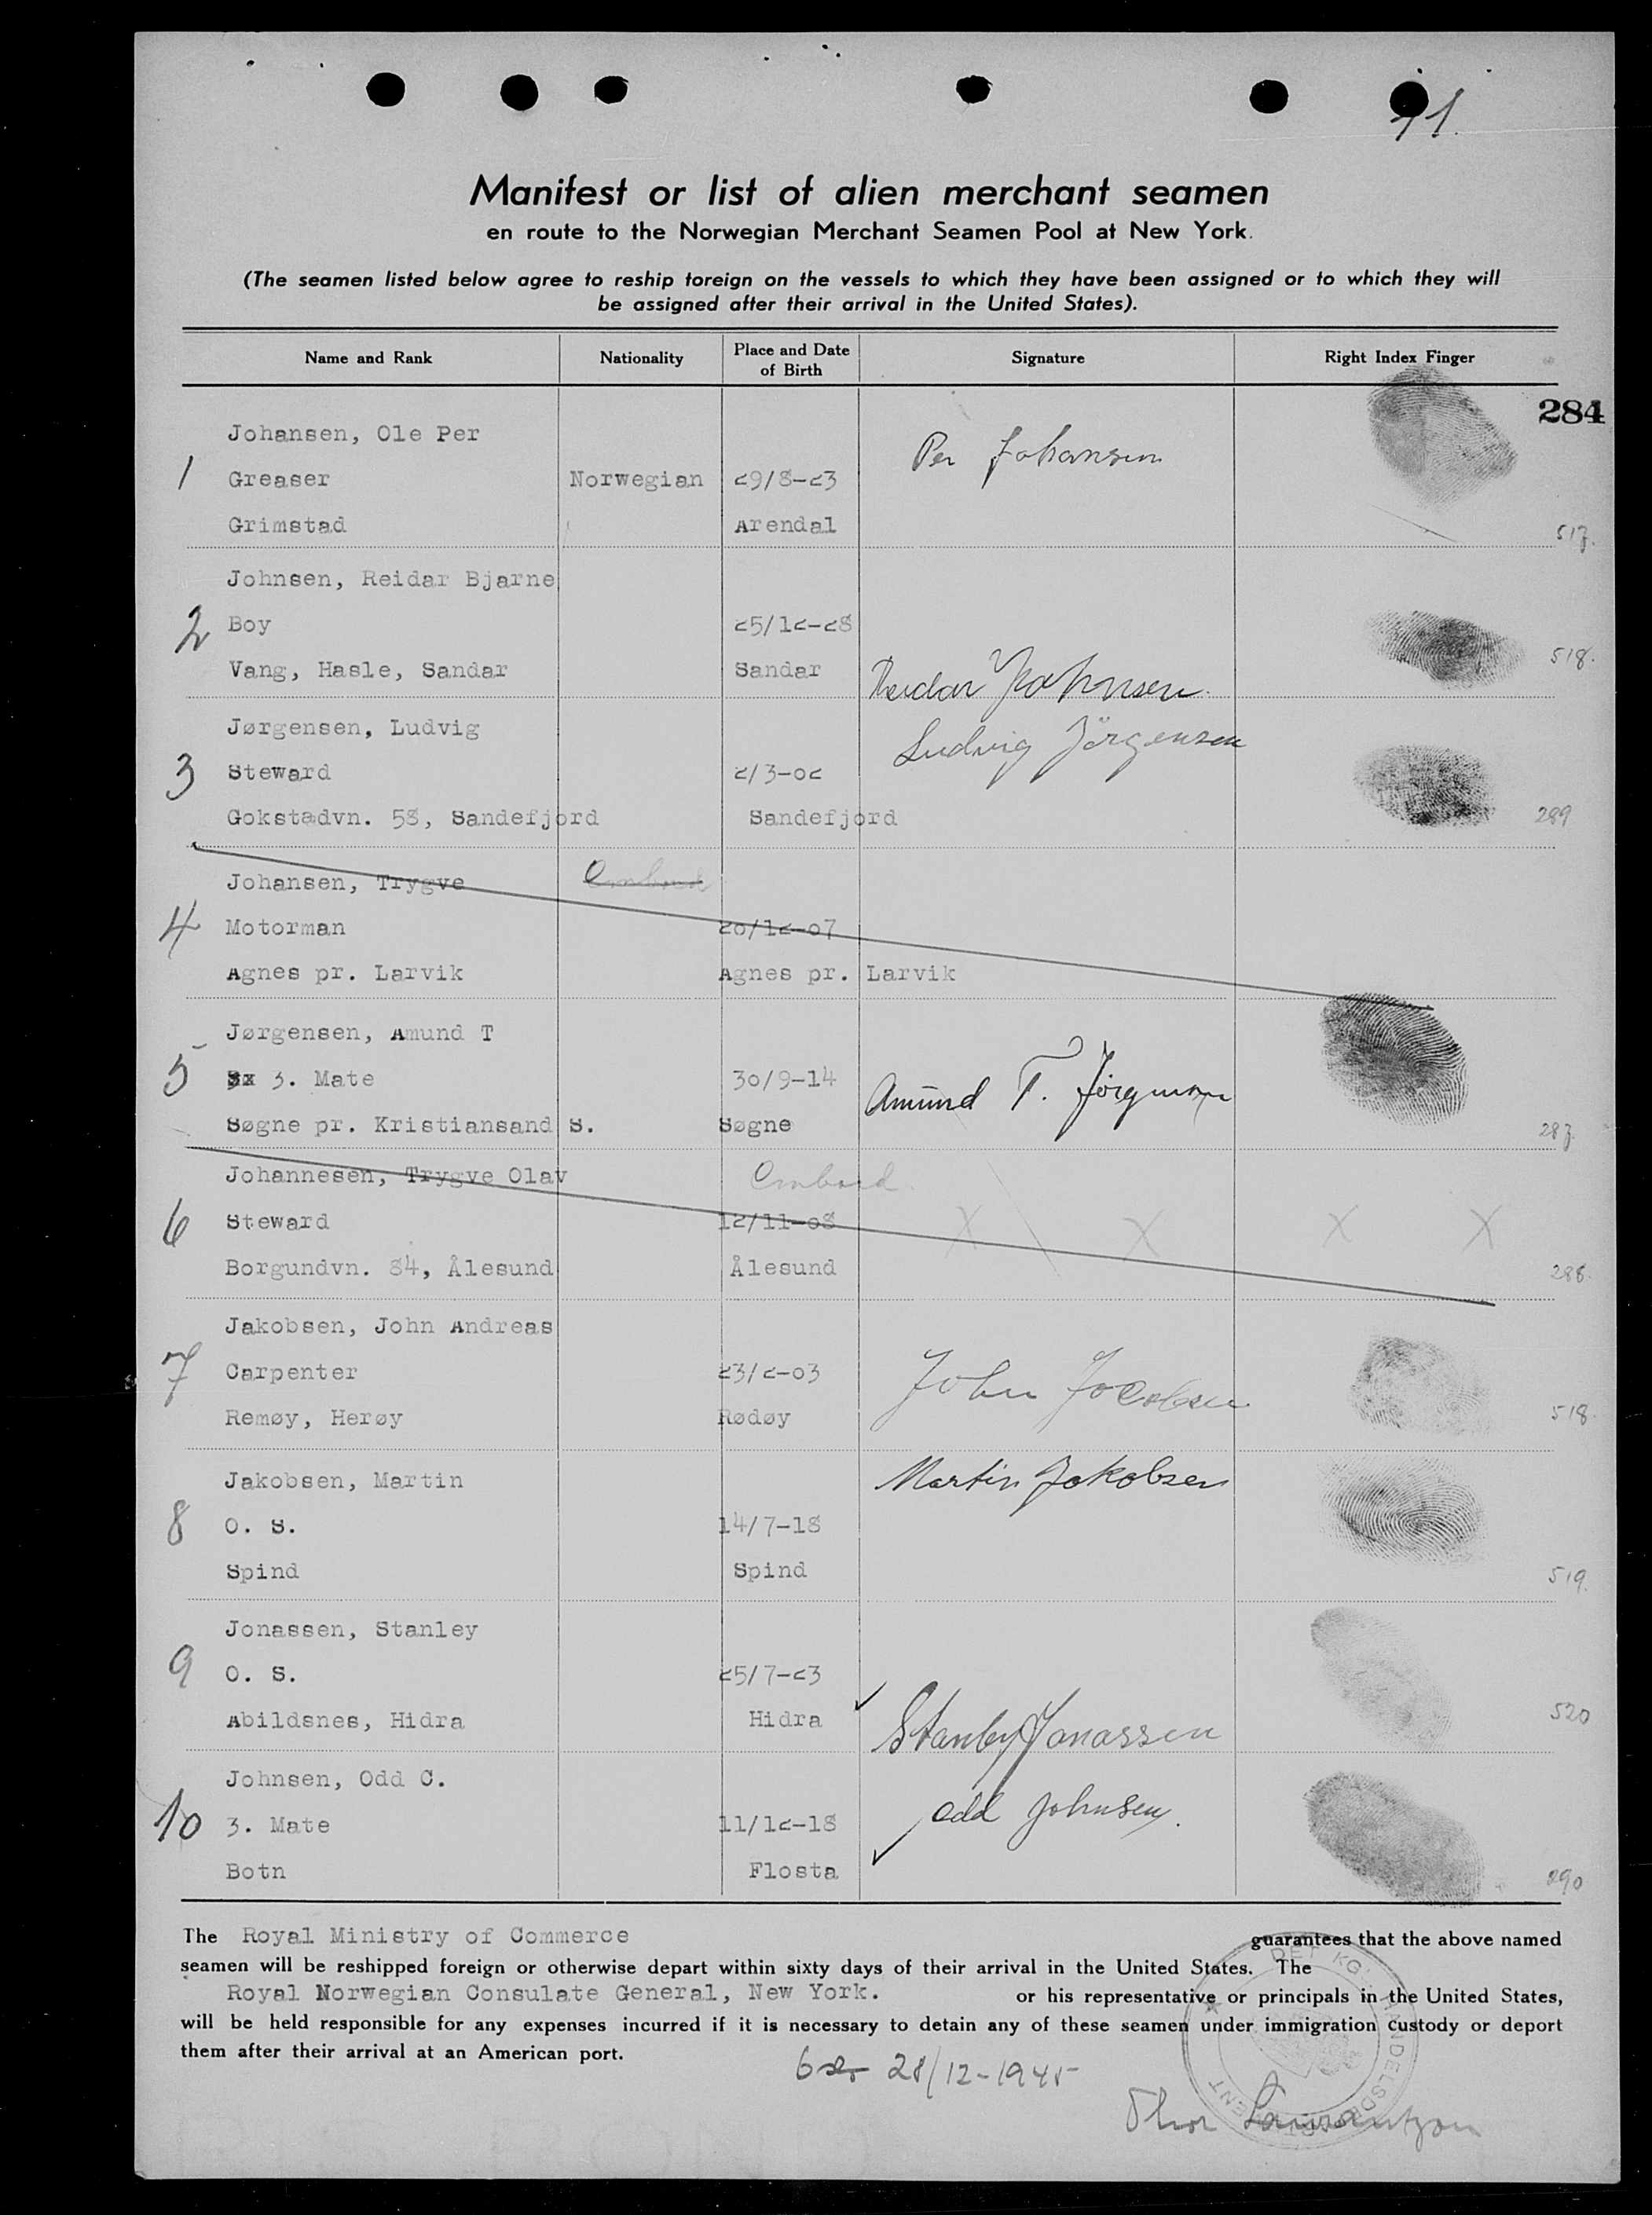 11.
Manifest or list of alien merchant seamen
en route to the Norwegian Merchant Seamen Pool at New York.
(The seamen listed below agree to reship foreign on the vessels to which they have been assigned or to which they will
be assigned after their arrival in the United States).
Name and Rank Nationality Place and Date of Birth Signature Right Index Finger
284
Johansen, Ole Per
Per Johansen
1 Greaser Norwegian 29/8-23
Grimstad Arendal
517.
Johnsen, Reidar Bjarne
2 Boy 25/12-28
518.
Vang, Hasle, Sandar Sandar
Reidar Johnsen.
Jørgensen, Ludvig
Ludvig Jörgensen
3 Steward 2/3-02
Gokstadvn. 58, Sandefjord Sandefjord
289
Johansen, Trygve Ombord
4 Motorman 20/12-07
Agnes pr. Larvik Agnes pr. Larvik
Jørgensen, Amund T
5 3. Mate 30/9-14
Amund T. Jörgensen
Søgne pr. Kristiansand S. Søgne
287.
Johannesen, Trygve Olav
Ombord
6 Steward 12/11-08 X X X X
Borgundvn. 84, Ålesund Ålesund
288.
Jakobsen, John Andreas
7 Carpenter 23/2-03
John Jacobsen
Remøy, Herøy Rødøy
518.
Jakobsen, Martin
Martin Jakobsen
8 O. S. 14/7-18
Spind Spind
519.
Jonassen, Stanley
9 O. S. 25/7-23
Abildsnes, Hidra Hidra
520
Stanley Jonassen
Johnsen, Odd C.
10 3. Mate 11/12-18
Odd Johnsen.
Botn Flosta
290
The Royal Ministry of Commerce guarantees that the above named
seamen will be reshipped foreign or otherwise depart within sixty days of their arrival in the United States. The
Royal Norwegian Consulate General, New York. or his representative or principals in the United States,
will be held responsible for any expenses incurred if it is necessary to detain any of these seamen under immigration custody or deport
them after their arrival at an American port.
28/12-1945
Thor Laurantzon